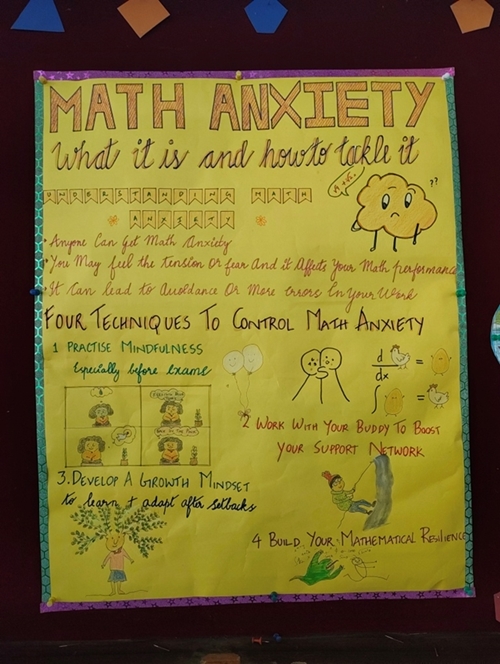 MATH ANXIETY
What it is and how to tackle it
UNDERSTANDING MATH
ANXIETY
??
• Anyone Can Get Math Anxiety
• You May feel the tension Or fear And it Affects Your Math performance
• It Can lead to Avoidance Or More Errors In Your Work
FOUR TECHNIQUES TO CONTROL MATH ANXIETY
1 PRACTISE MINDFULNESS
Especially before Exams
d
dx
=
∫
=
2 WORK WITH YOUR BUDDY TO BOOST
YOUR SUPPORT NETWORK
3. DEVELOP A GROWTH MINDSET
to learn & adapt after setbacks
4 BUILD YOUR MATHEMATICAL RESILIENCE